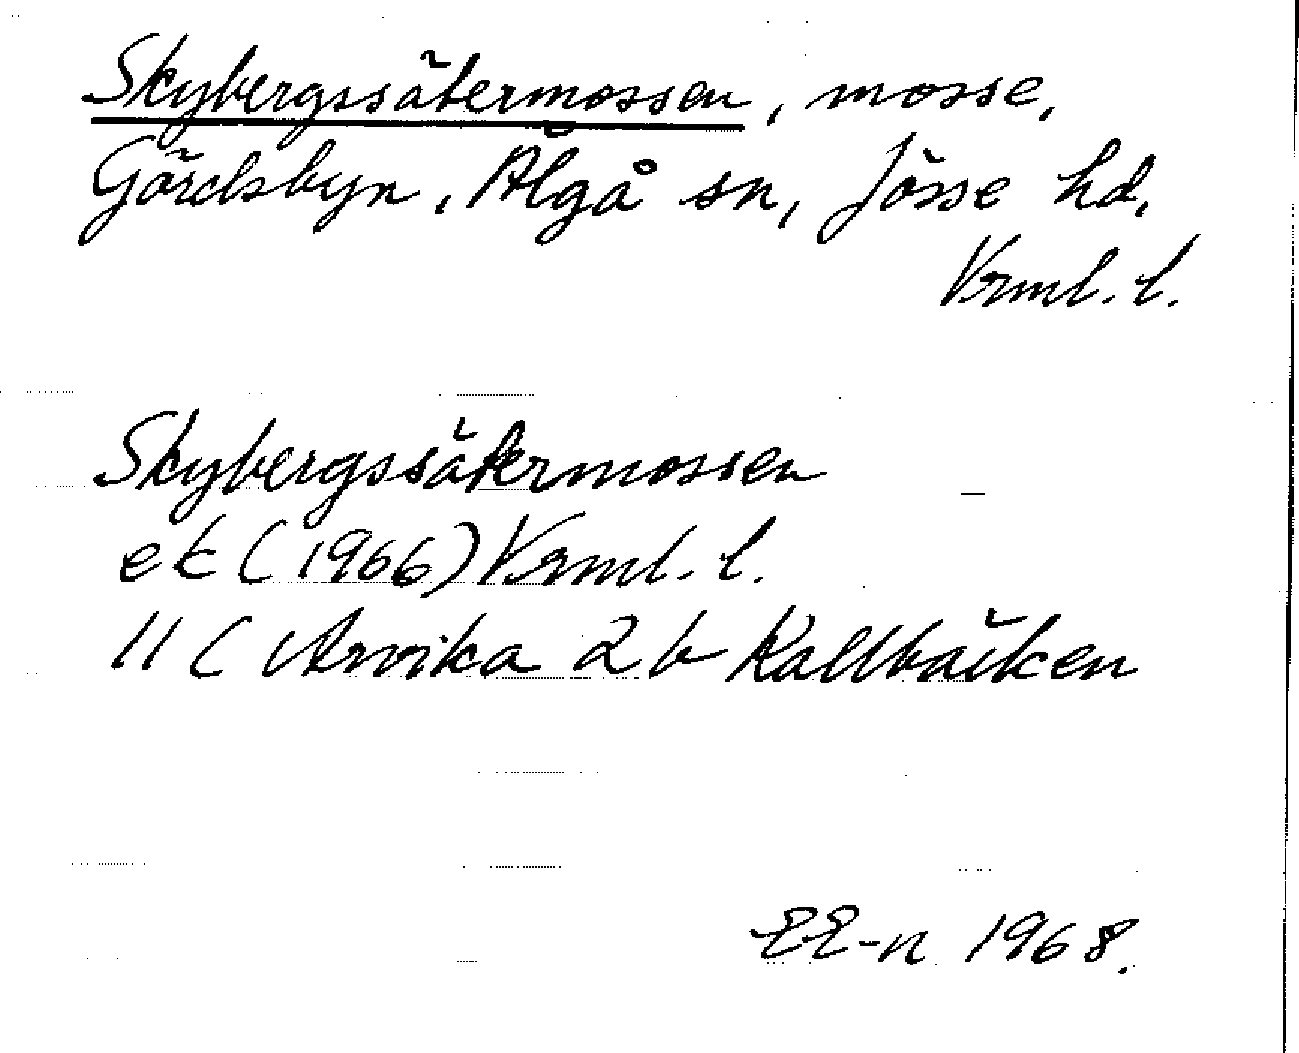 Skybergssätermossen, mosse,
Gördsbyn, Älgå sn, Jösse hd,
Vrml. l.
Skybergssätermossen
ek (1966) Vrml. l.
11 C Arvika 2 b Kallbäcken
EE-n 1968.